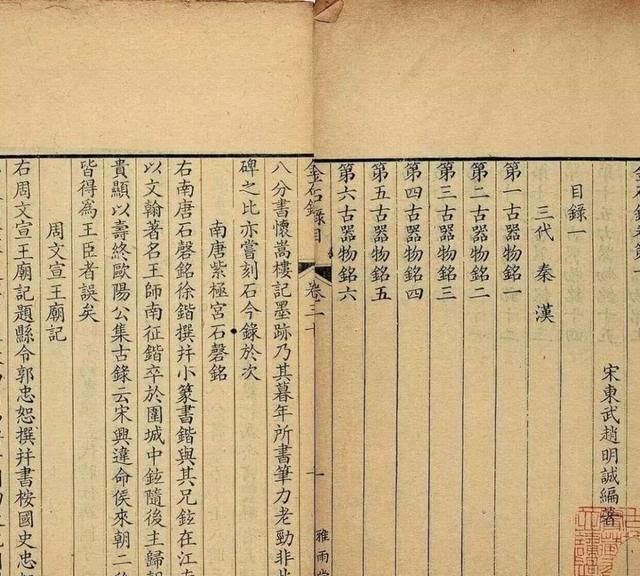 金石錄卷第
宋東武趙明誠編著
目錄一
三代 秦 漢
第一古器物銘一
第二古器物銘二
第三古器物銘三
第四古器物銘四
第五古器物銘五
第六古器物銘六
金石錄目 卷三十 一 雅雨堂
八分書懷嵩樓記墨跡乃其暮年所書筆力老勁非此
碑之比亦嘗刻石今錄於次
南唐紫極宮石磬銘
右南唐石磬銘徐鍇撰并小篆書鍇與其兄鉉在江南
以文翰著名王師南征鍇卒於圍城中鉉隨後主歸朝
貴顯以壽終歐陽公集古錄云宋興違命侯來朝二徐
皆得為王臣者誤矣
周文宣王廟記
右周文宣王廟記題縣令郭忠恕撰并書桉國史忠恕